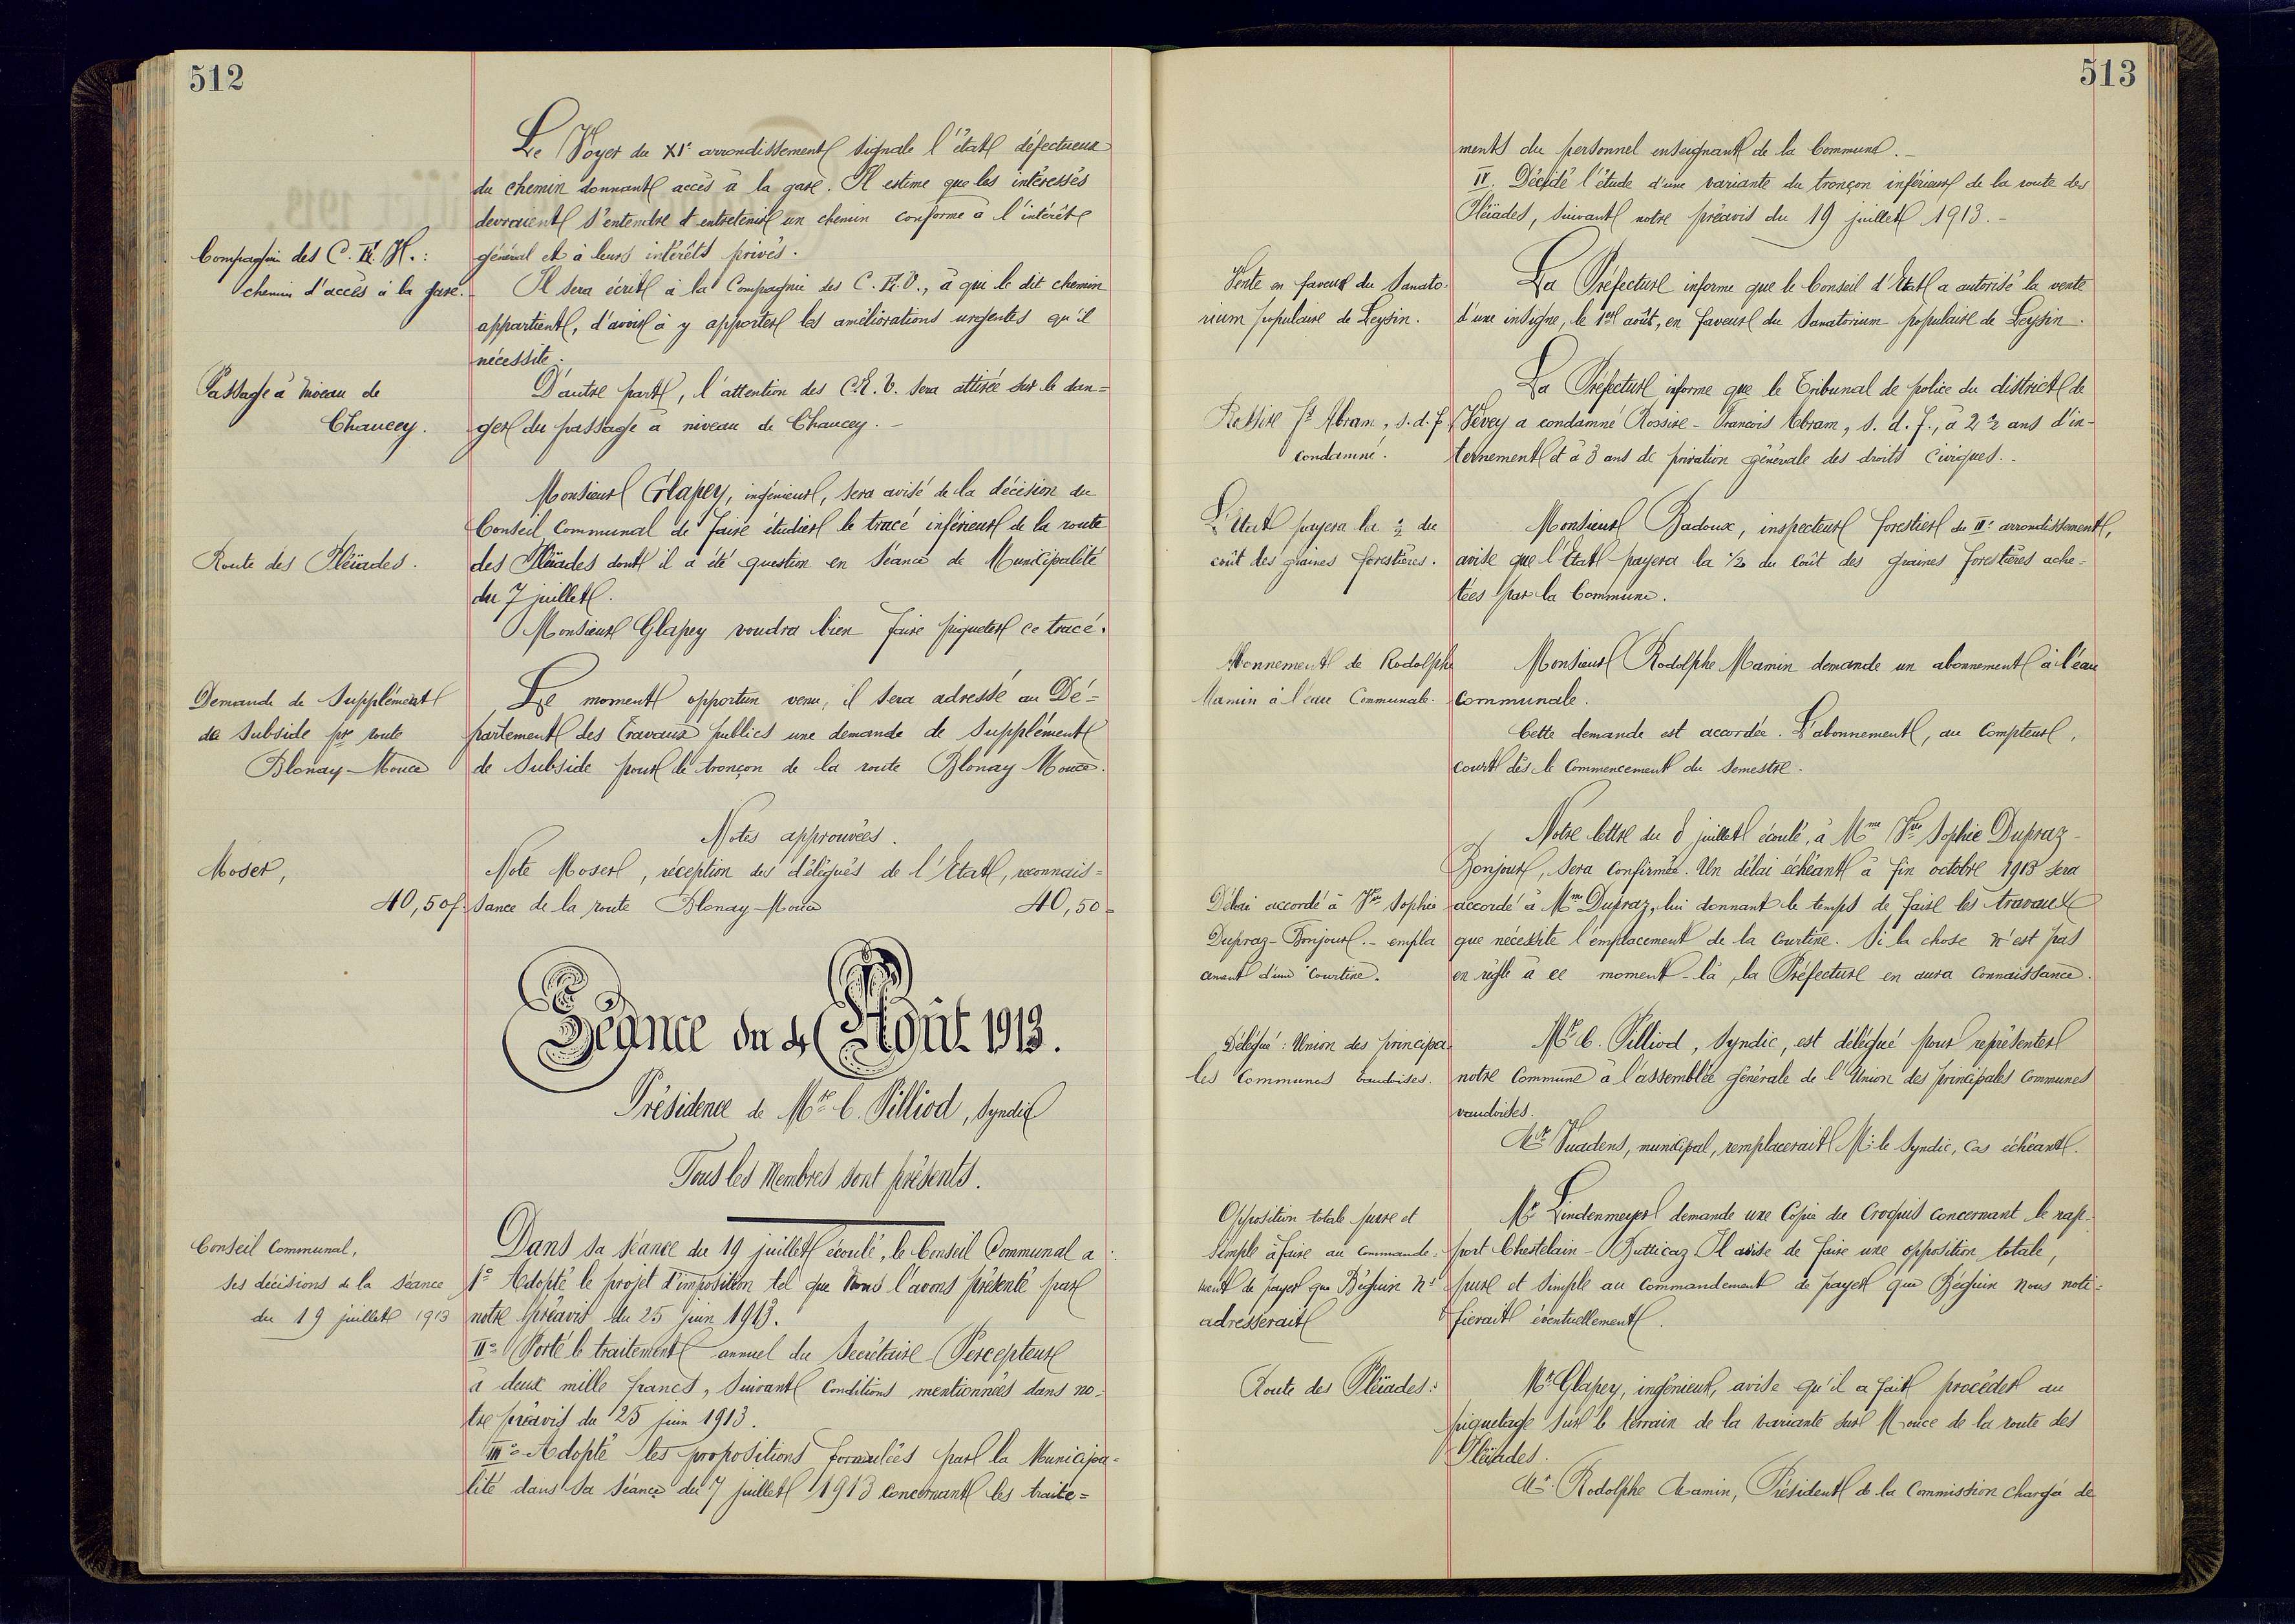 512
Le Voyer du XIe arrondissement signale l'état défectueux
du chemin donnant accès à la gare. Il estime que les intéressés
devraient s'entendre et entretenir un chemin conforme à l'intérêt
Compagnie des C. E. V. :
général et à leurs intérêts privés.
chemin d'accès à la gare.
Il sera écrit à la Compagnie des C. E. V., à qui le dit chemin
appartient, d'avoir à y apporter les améliorations urgentes qu'il
nécessite.
Passage à niveau de
D'autre part, l'attention des C. E. V. sera attirée sur le dan=
Chaucey.
ger du passage à niveau de Chaucey. -
Monsieur Glapey, ingénieur, sera avisé de la décision du
Conseil Communal de faire étudier le tracé inférieur de la route
Route des Pléiades.
des Pléiades dont il a été question en séance de Municipalité
du 7 juillet.
Monsieur Glapey voudra bien faire piqueter ce tracé.
Demande de Supplément
Le moment opportun venu, il sera adressé au Dé=
de Subside pr route
partement des Travaux publics une demande de Supplément
Blonay-Mouce
de Subside pour le tronçon de la route Blonay-Mouce.
Notes approuvées.
Moser,
Note Moser, réception des délégués de l'Etat, reconnais=
40,50 f.
sance de la route Blonay-Mouce 40,50
Séance du 4 Août 1913.
Présidence de Mr C. Pilliod, Syndic
Tous les Membres sont présents.
Conseil Communal,
Dans sa séance du 19 juillet écoulé, le Conseil Communal a :
ses décisions de la séance
Io Adopté le projet d'imposition tel que nous l'avons présenté par
du 19 juillet 1913
notre préavis du 25 juin 1913.
IIo Porté le traitement annuel du Secrétaire Percepteur
à deux mille francs, suivant conditions mentionnées dans no-
tre préavis du 25 juin 1913.
IIIo Adopté les propositions formulées par la Municipa=
lité dans sa séance du 7 juillet 1913 concernant les traite=
513
ments du personnel enseignant de la Commune. -
IV. Décidé l'étude d'une variante du tronçon inférieur de la route des
Pléiades, suivant notre préavis du 19 juillet 1913. -
Vente en faveur du Sanato-
La Préfecture informe que le Conseil d'Etat a autorisé la vente
rium populaire de Leysin.
d'une insigne, le 1er août, en faveur du Sanatorium populaire de Leysin.
La Préfecture informe que le Tribunal de police du district de
Fs Abram, s. d. f.
Vevey a condamné Rossire - François Abram, s. d. f., à 2 1/2 ans d'in-
condamné.
ternement et à 3 ans de privation générale des droits civiques. -
L'Etat payera la 1/2 du
Monsieur Badoux, inspecteur forestier du IIe arrondissement,
coût des graines forestières.
avise que l'Etat payera la 1/2 du coût des graines forestières ache-
tées par la Commune.
Abonnement de Rodolphe
Monsieur Rodolphe Mamin demande un abonnement à l'eau
Mamin à l'eau Communale.
communale.
Cette demande est accordée. L'abonnement, au compteur,
court dès le commencement du semestre.
Notre lettre du 8 juillet écoulé, à Mme Vve Sophie Dupraz-
Bonjour, sera confirmée. Un délai échéant à fin octobre 1913 sera
Délai accordé à Vve Sophie
accordé à Mme Dupraz, lui donnant le temps de faire les travaux
Dupraz-Bonjour. - empla
que nécessite l'emplacement de la courtine. Si la chose n'est pas
cement d'une Courtine.
en règle à ce moment-là, la Préfecture en aura connaissance.
Délégué : Union des principa-
Mr C. Pilliod, Syndic, est délégué pour représenter
les Communes vaudoises.
notre Commune à l'assemblée générale de l'Union des principales Communes
vaudoises.
Mr Vuadens, municipal, remplacerait Mr le Syndic, cas échéant.
Opposition totale pure et
Mr Lindenmeyer demande une Copie du Croquis concernant le rap-
simple à faire au commande-
port Chestelain - Butticaz. Il avise de faire une opposition totale,
ment de payer que Béguin ns
pure et simple au commandement de payer que Béguin nous noti-
adresserait
fierait éventuellement.
Route des Pléiades :
Mr Glapey, ingénieur, avise qu'il a fait procéder au
piquetage sur le terrain de la variante sur Mouce de la route des
Pléiades.
Mr. Rodolphe Mamin, Président de la Commission chargée de